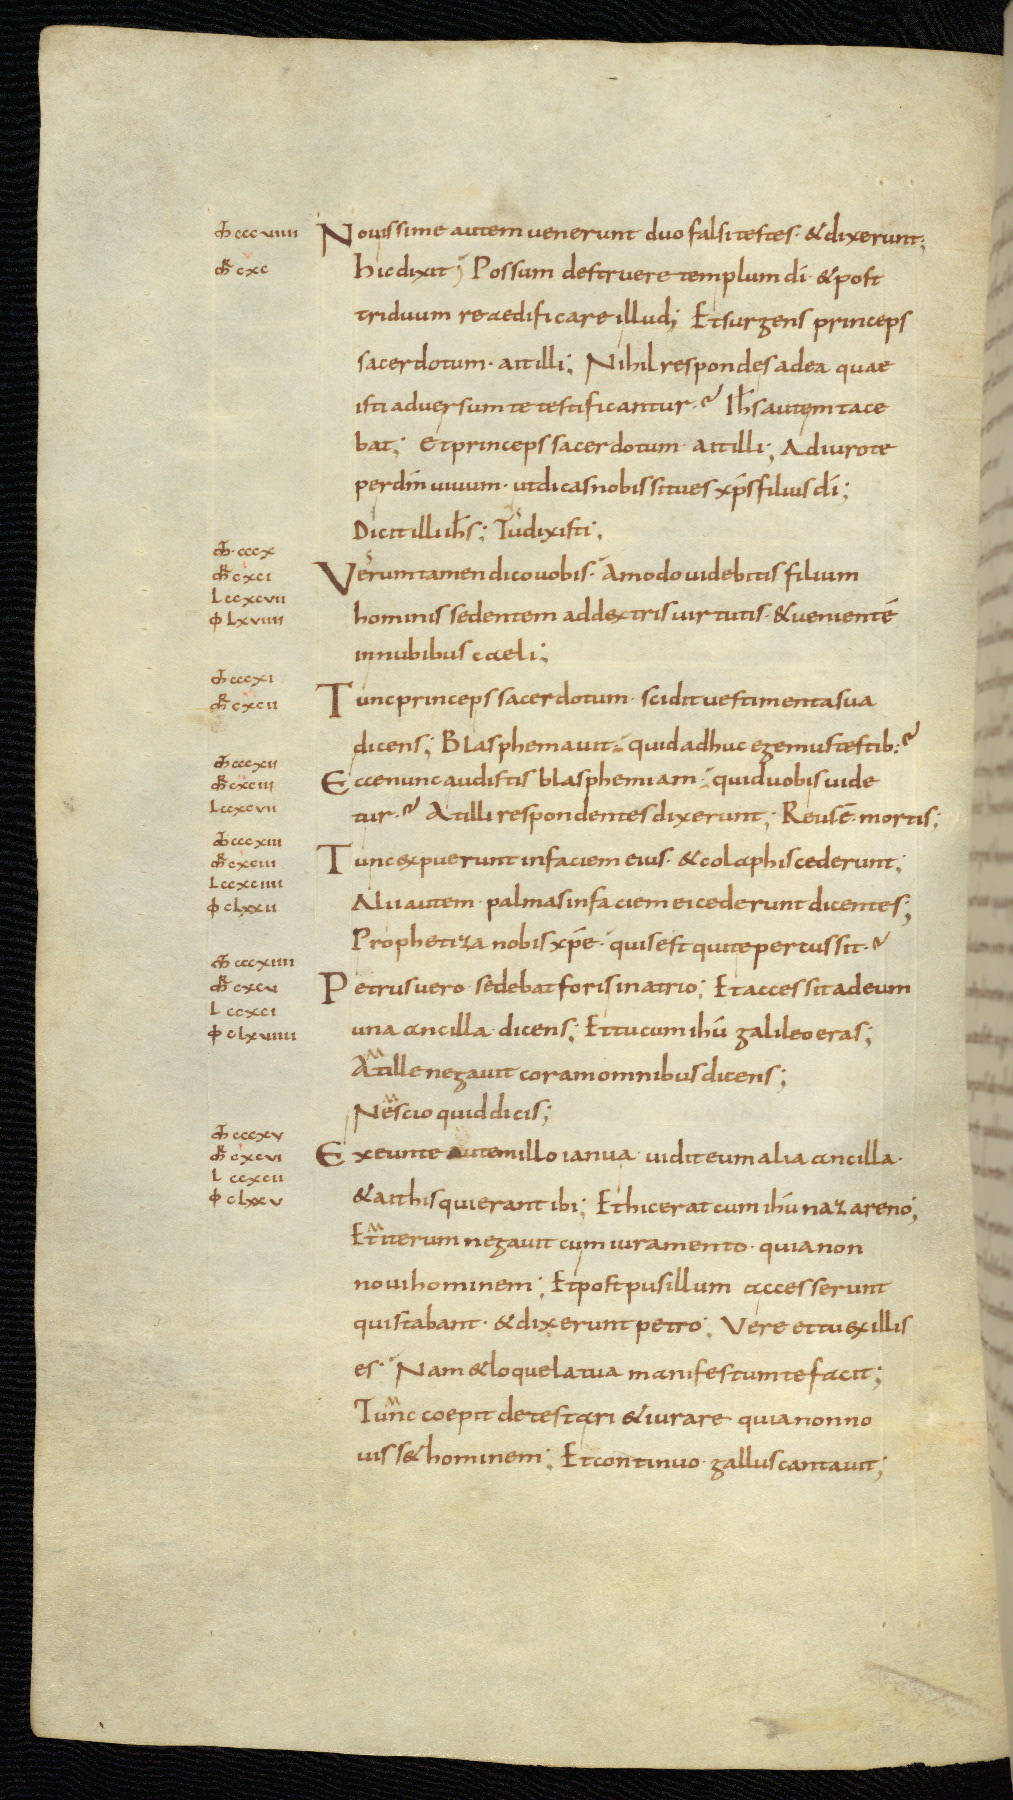 Mt cccviiii Nouissime autem uenerunt duo falsi testes· & dixerunt;
Mr cxc hic dixit; Possum destruere templum dī· & post
triduum reaedificare illud; Et surgens princeps
sacerdotum· ait illi; Nihil respondes ad ea quae
isti aduersum te testificantur·? Ihs autem tace
bat; Et princeps sacerdotum· ait illi; Adiuro te
per dm̄ uiuum· ut dicas nobis si tu es xp̄s filius dī;
Dicit illi ihs; Tu dixisti;
Mt·cccx
Mr cxci Verum tamen dico uobis· Amodo uidebitis filium
L ccxcvii
Io Lxviiii hominis sedentem ad dextris uirtutis· & uenientē
in nubibus caeli;
Mt cccxi
Mr cxcii Tunc princeps sacerdotum· scidit uestimenta sua
dicens; Blasphemauit· quid adhuc egemus testib:?
Mt cccxii
Mr cxciii Ecce nunc audistis blasphemiam· quid uobis uide
L ccxcvii tur·? At illi respondentes dixerunt; Reus ē mortis;
Mt cccxiii
Mr cxciiii Tunc expuerunt in faciem eius· & colaphis cederunt;
L ccxciiii
Io cLxxii Alii autem· palmas in faciem ei cederunt dicentes;
Prophetiza nobis xp̄e· quis est qui te percussit·?
Mt cccxiiii
Mr cxcv Petrus uero· sedebat foris in atrio; Et accessit ad eum
L ccxci
Io cLxviiii una ancilla· dicens; Et tu cum ihū galileo eras;
At ille negauit coram omnibus dicens;
Nescio quid dicis;
Mt cccxv
Mr cxcvi Exeunte autem illo ianua· uidit eum alia ancilla·
L ccxcii
Io cLxxv & ait his qui erant ibi; Et hic erat cum ihū nazareno;
Et iterum negauit cum iuramento· quia non
noui hominem; Et post pusillum accesserunt
qui stabant· & dixerunt petro; Vere et tu ex illis
es· Nam & loquela tua manifestum te facit;
Tunc coepit detestari & iurare quia non no
uiss& hominem; Et continuo· gallus cantauit;